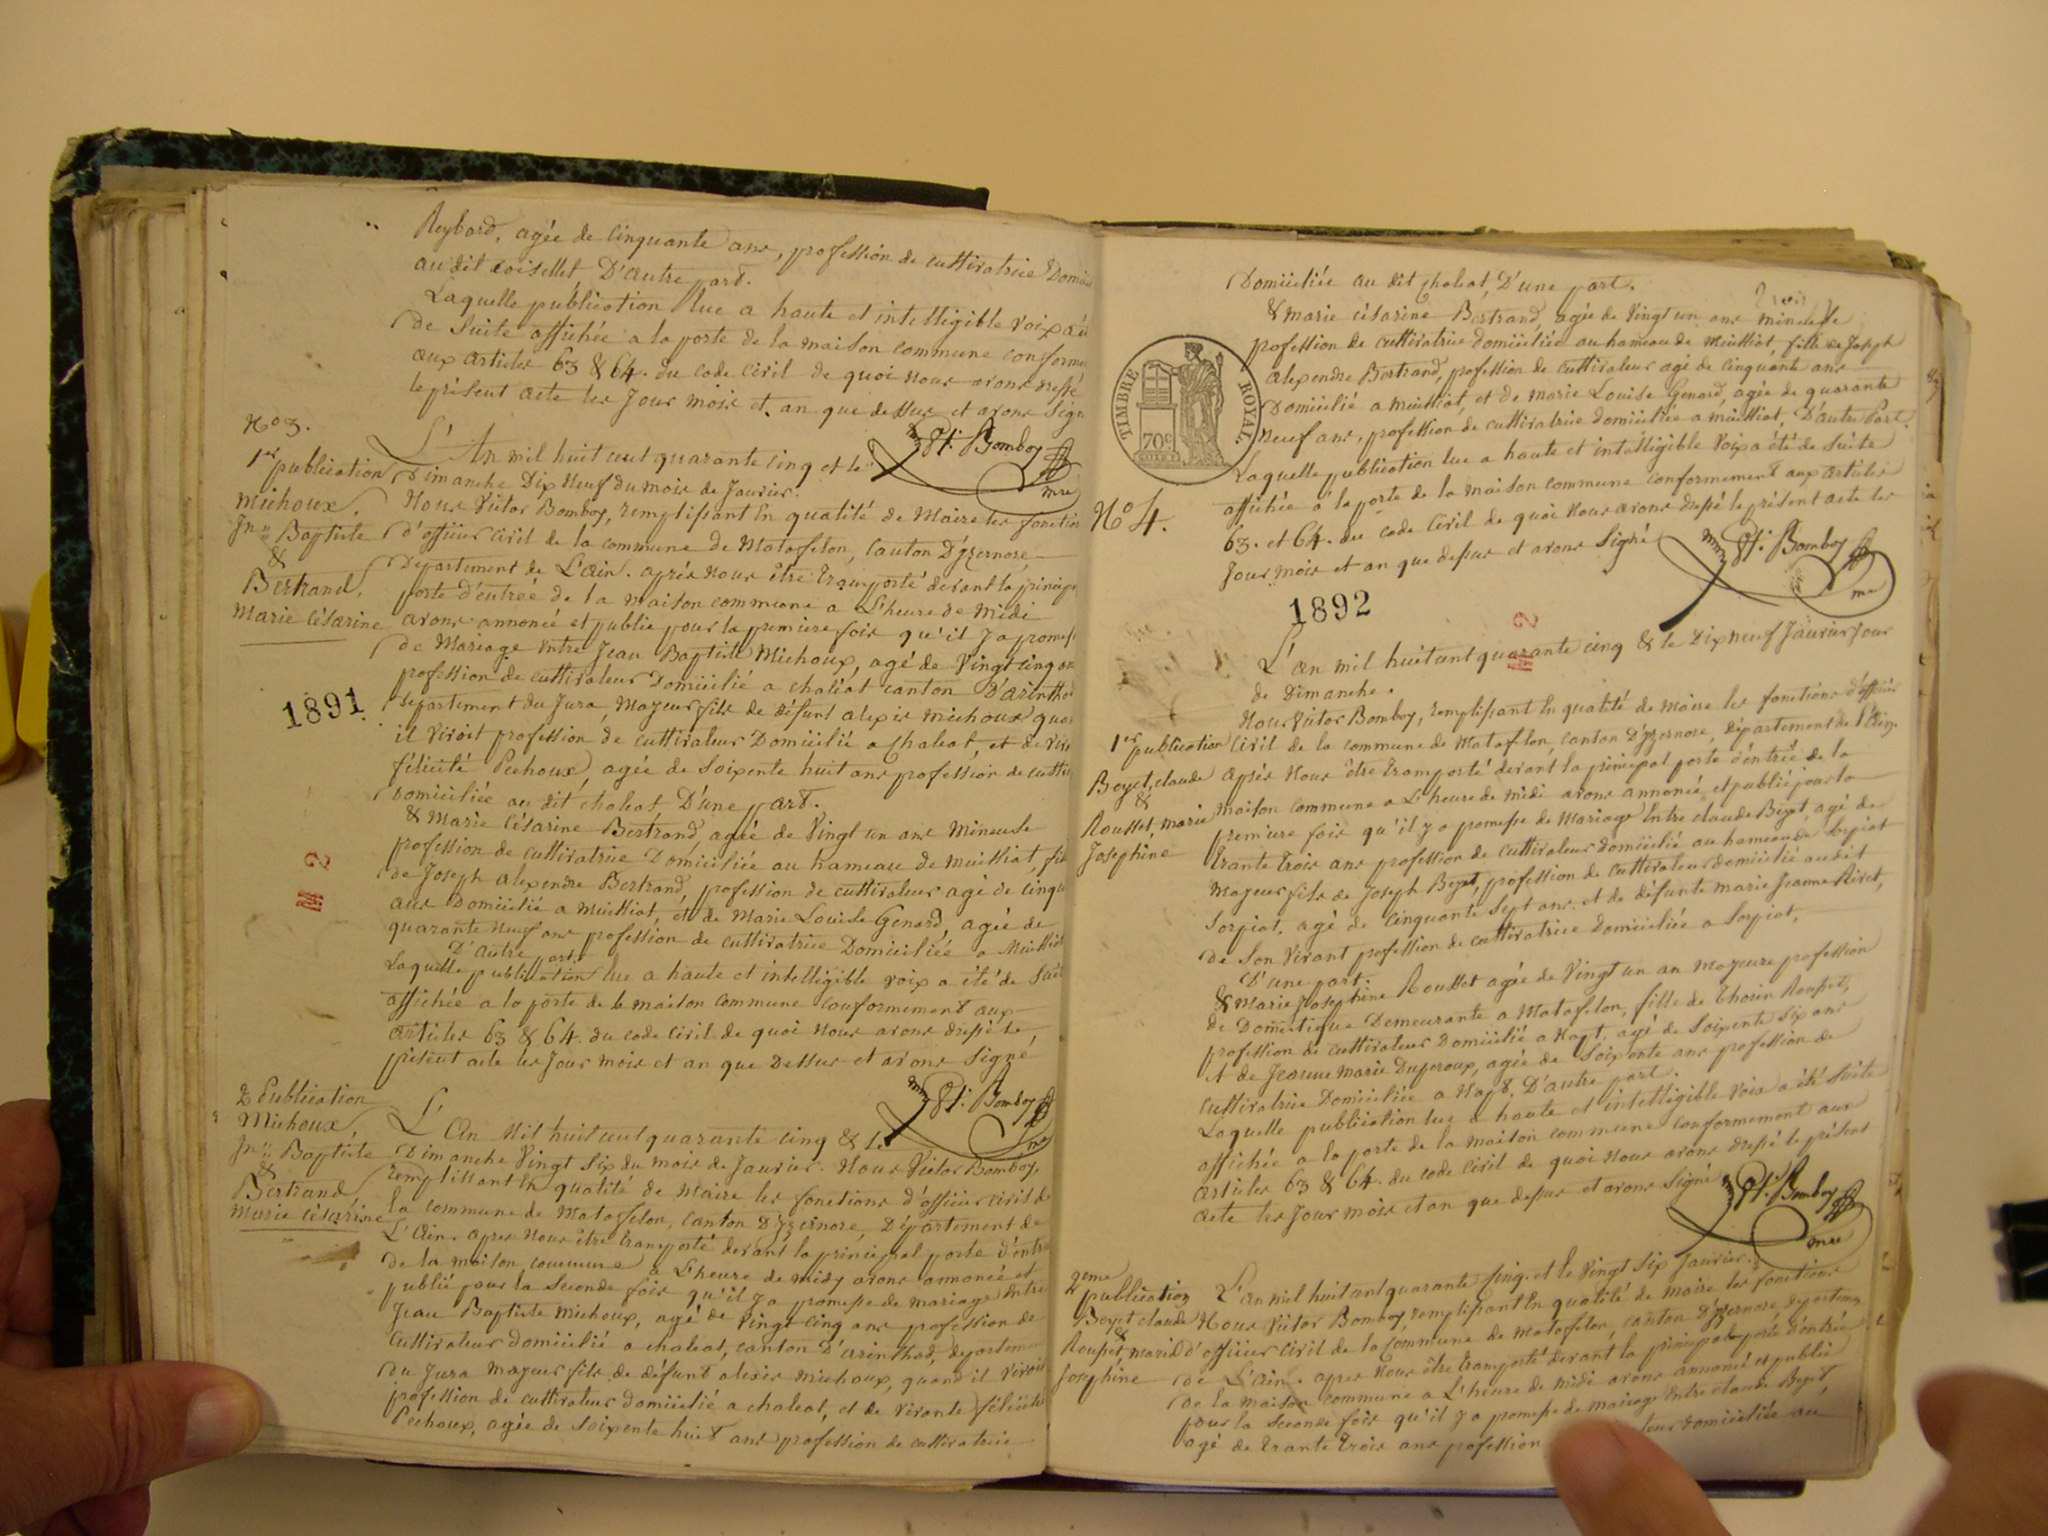 Reybard, agée de Cinquante ans, profession de cultivatrice Domici
au dit coisellet, D'autre part.
Laquelle publication lue a haute et intelligible voix a é
de Suite affichée a la porte de la maison commune conforme
aux articles 63 & 64. du code Civil de quoi nous avons dressé
le présent acte les Jour mois et an que dessus et avons Sign
Vr. Bomboy
mre
No 3.
1er publication
michoux,
Jn Baptiste
&
Bertrand,
Marie Césarine
1891
L'An mil huit cent quarante cinq et le
Dimanche Dix Neuf du mois de Janvier.
Nous Victor Bomboy, remplissant En qualité de Maire les fonction
d'officier Civil de la commune de Matafelon, Canton D'yzernore,
Département de L'ain. après nous être transporté devant la principa
porte d'entrée de la maison commune a L'heure de midi
avons annoncé et publié pour la premiere fois qu'il y a promess
de Mariage entre Jean Baptiste Michoux, agé de Vingt cinq an
profession de cultivateur Domicilié a chaléat canton D'arinthod
departement du Jura, Majeur fils de défunt alexis michoux quan
il vivoit profession de cultivateur Domicilié a chaleat, et de viv
félicité Pechoux, agée de Soixente huit ans profession de culti
Domiciliée au dit chaleat D'une part.
& Marie Césarine Bertrand, agée de Vingt un ans Mineure
profession de cultivatrice Domiciliée au hameau de muissiat, fil
de Joseph alexendre Bertrand, profession de cultivateur agé de Cinqu
ans Domicilié a Muissiat, et de Marie Louise Genard, agée de
quarante neuf ans profession de cultivatrice Domiciliée a Muissiat
D'autre part.
Laquelle publication lue a haute et intelligible voix a été de Sui
affichée a la porte de la maison commune conformement aux
articles 63 & 64. du code Civil de quoi nous avons dressé le
présent acte les Jour mois et an que Dessus et avons Signé
Vr. Bomboy
mre
2 Publication
Michoux,
Jn Baptiste
&
Bertrand
Marie Césarine
L'An Mil huit cent quarante cinq & le
Dimanche Vingt Six du mois de Janvier. Nous Victor Bomboy,
remplissant En qualité de Maire les fonctions d'officier civil de
la commune de Matafelon, canton D'yzernore, Département de
L'Ain. apres nous être transporté devant la principal porte d'entré
de la maison commune a L'heure de midy avons annoncé et
publié pour la Seconde fois qu'il y a promesse de mariage entre
Jean Baptiste Michoux, agé de Vingt cinq ans profession de
Cultivateur domicilié a chaleat, canton D'arinthod, departemen
du Jura majeur fils de défunt alexis michoux, quand il vivoit
profession de cultivateur domicilié a chaleat, et de vivante félicité
Pechoux, agée de Soixente huit ans profession de cultivatrice
Domiciliée au dit chaleat, D'une part.
& marie césarine Bertrand, agée de Vingt un ans mineure
profession de cultivatrice domiciliée au hameau de Muissiat, fille de Joseph
alexendre Bertrand, profession de cultivateur agé de cinquante ans
Domicilié a muissiat, et de marie Louise Genard, agée de quarante
neuf ans, profession de cultivatrice domiciliée a muissiat, D'autre Part.
Laquelle publication lue a haute et intelligible Voix a été de Suite
affichée a la porte de la maison commune conformement aux articles
63. et 64. du code Civil de quoi nous avons dressé le présent acte les
Jour mois et an que dessus et avons Signé
Vr. Bomboy
mre
TIMBRE ROYAL
70c
No 4.
1892
L'an mil huit cent quarante cinq & le Dix neuf Janvier Jour
de Dimanche.
Nous Victor Bomboy, remplissant En qualité de maire les fonctions d'officier
Civil de la commune de Matafelon, canton D'yzernore, département de l'Ain.
après nous être transporté devant la principal porte d'entrée de la
maison commune a L'heure de midi avons annoncé, et publié pour la
premiere fois qu'il y a promesse de Mariage Entre claude Beyet, agé de
trante trois ans profession de cultivateur domicilié au hameau de Sorpiat
Majeur fils de Joseph Beyet, profession de cultivateur domicilié audit
Sorpiat, agé de cinquante Sept ans, et de défunte marie Jeanne Rivet,
de Son vivant profession de cultivatrice domiciliée a Sorpiat,
D'une part.
1er publication
Beyet, claude
&
Rousset, marie
Josephine
& marie josephine Rousset agée de Vingt un an Majeure profession
de Domestique Demeurante a Matafelon, fille de Thorin Rousset,
profession de cultivateur domicilié a Hapt, agé de Soixente Six ans
et de Jeanne marie Duperoux, agée de Soixente ans profession de
cultivatrice Domiciliée a Hapt. D'autre part.
Laquelle publication lue a haute et intelligible voix a été Suite
affichée a la porte de la maison commune conformement aux
articles 63 & 64. du code Civil de quoi nous avons dressé le présent
acte les Jour mois et an que dessus et avons Signé
Vr. Bomboy
mre
2eme
publication
Beyet claude
&
Rousset marie
Josephine
L'an mil huit cent quarante Cinq. et le Vingt Six Janvier.
Nous Victor Bomboy, remplissant En qualité de maire les fonctions
d'officier Civil de la Commune de Matafelon, canton D'yzernore, departemen
de L'Ain. apres nous être transporté devant la principal porte d'entrée
de la maison commune a L'heure de midi avons annoncé et publié
pour la Seconde fois qu'il y a promesse de mariage Entre claude Beyet,
agé de trante trois ans profession teur domiciliée au